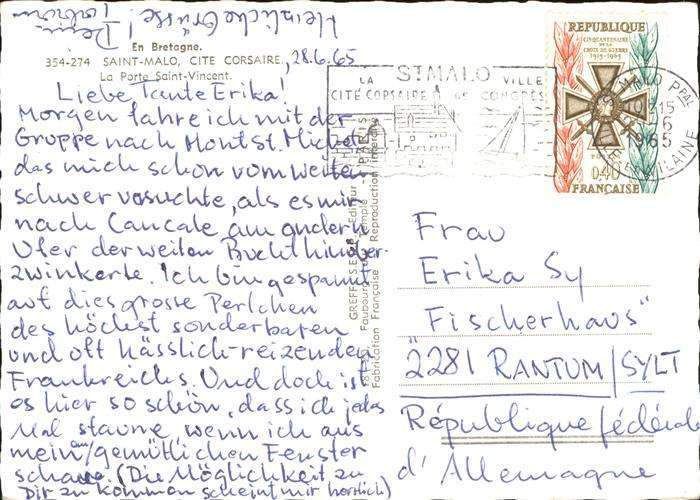 Herzliche Grüsse! Dein
En Bretagne.
354-274 SAINT-MALO, CITE CORSAIRE
La Porte Saint-Vincent.
28.6.65
Liebe Tante Erika!
Morgen fahre ich mit der
Gruppe nach Mont St. Michel
das mich schon vom weiten
schwer versuchte, als es mir
nach Cancale am andern
Ufer der weiten Bucht hinüber-
zwinkerte. Ich bin gespannt
auf dies grosse Perlchen
des höchst sonderbaren
und oft hässlich-reizenden
Frankreichs. Und doch ist
es hier so schön, dass ich jedes
Mal staune, wenn ich aus
mein/em gemütlichen Fenster
schaue. (Die Möglichkeit zu
Dir zu kommen scheint mir herrlich)
GREFF S.E. Editeur
Faubourg du Temple PARIS
Fabrication Française Reproduction interdite
LA ST MALO VILLE
CITÉ CORSAIRE CONGRÈS
ST MALO PPAL
15
6
1965
ILLE ET VILAINE
REPUBLIQUE
CINQUANTENAIRE
DE LA
CROIX DE GUERRE
1915-1965
0,40
FRANÇAISE
Frau
Erika Sy
"Fischerhaus"
2281 RANTUM/SYLT
République fédérale
d'Allemagne